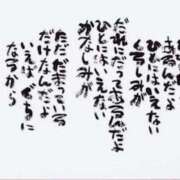 あるんだよ
ひとにはいえない
くるしみが
だれにだってあるんだよ
ひとにはいえない
かなしみが
ただだまっている
だけなんだよ
いえばぐちに
なるから